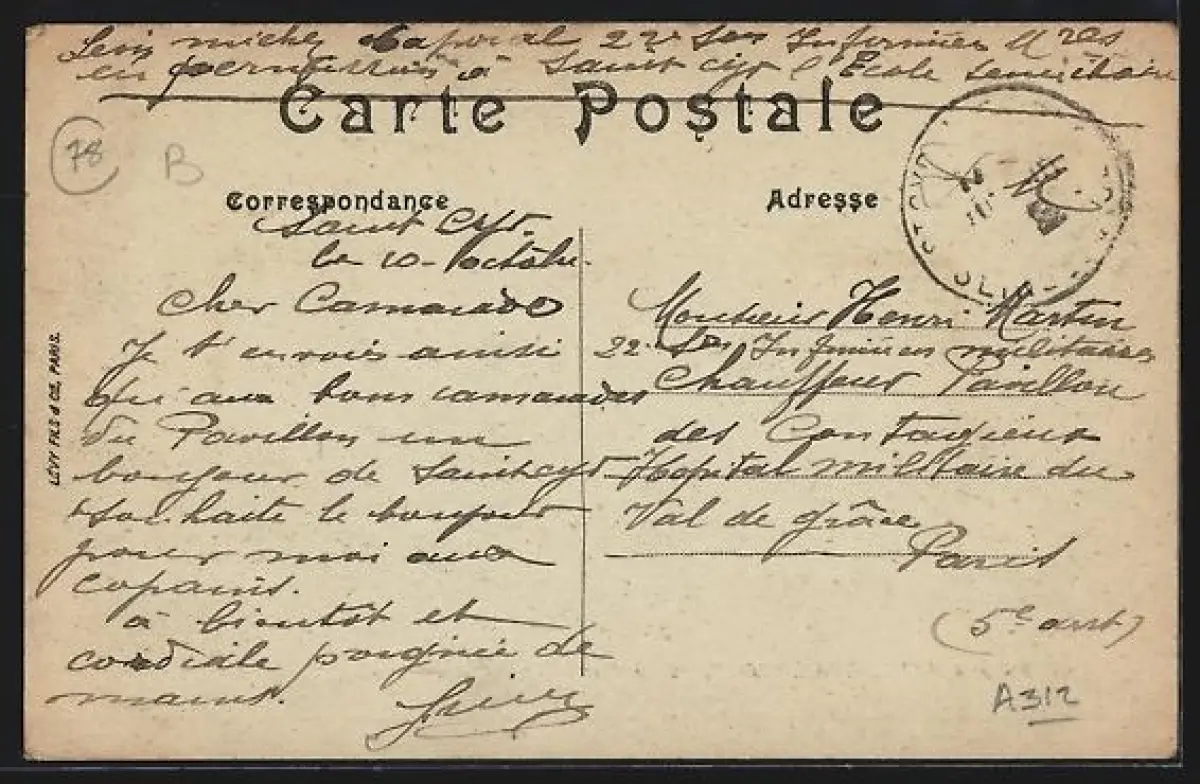 caporal 22e Son Infirmiers Mres
en permission à Saint Cyr l'École
Carte Postale
78
B
Correspondance
Adresse
Saint Cyr.
le 10 - Octobre.
cher Camarade
Je t'envois ainsi
qu'aux bons camarades
du Pavillon un
bonjour de Saint Cyr
souhaite le bonjour
pour moi aux
copains.
à bientôt et
cordiale poignée de
mains.
Monsieur Henri Martin
22e Son Infirmiers militaires
Chauffeur Pavillon
des Contagieux
Hopital militaire du
Val de grâce
Paris
(5e arrt)
A312
LÉVY FILS & CIE, PARIS.